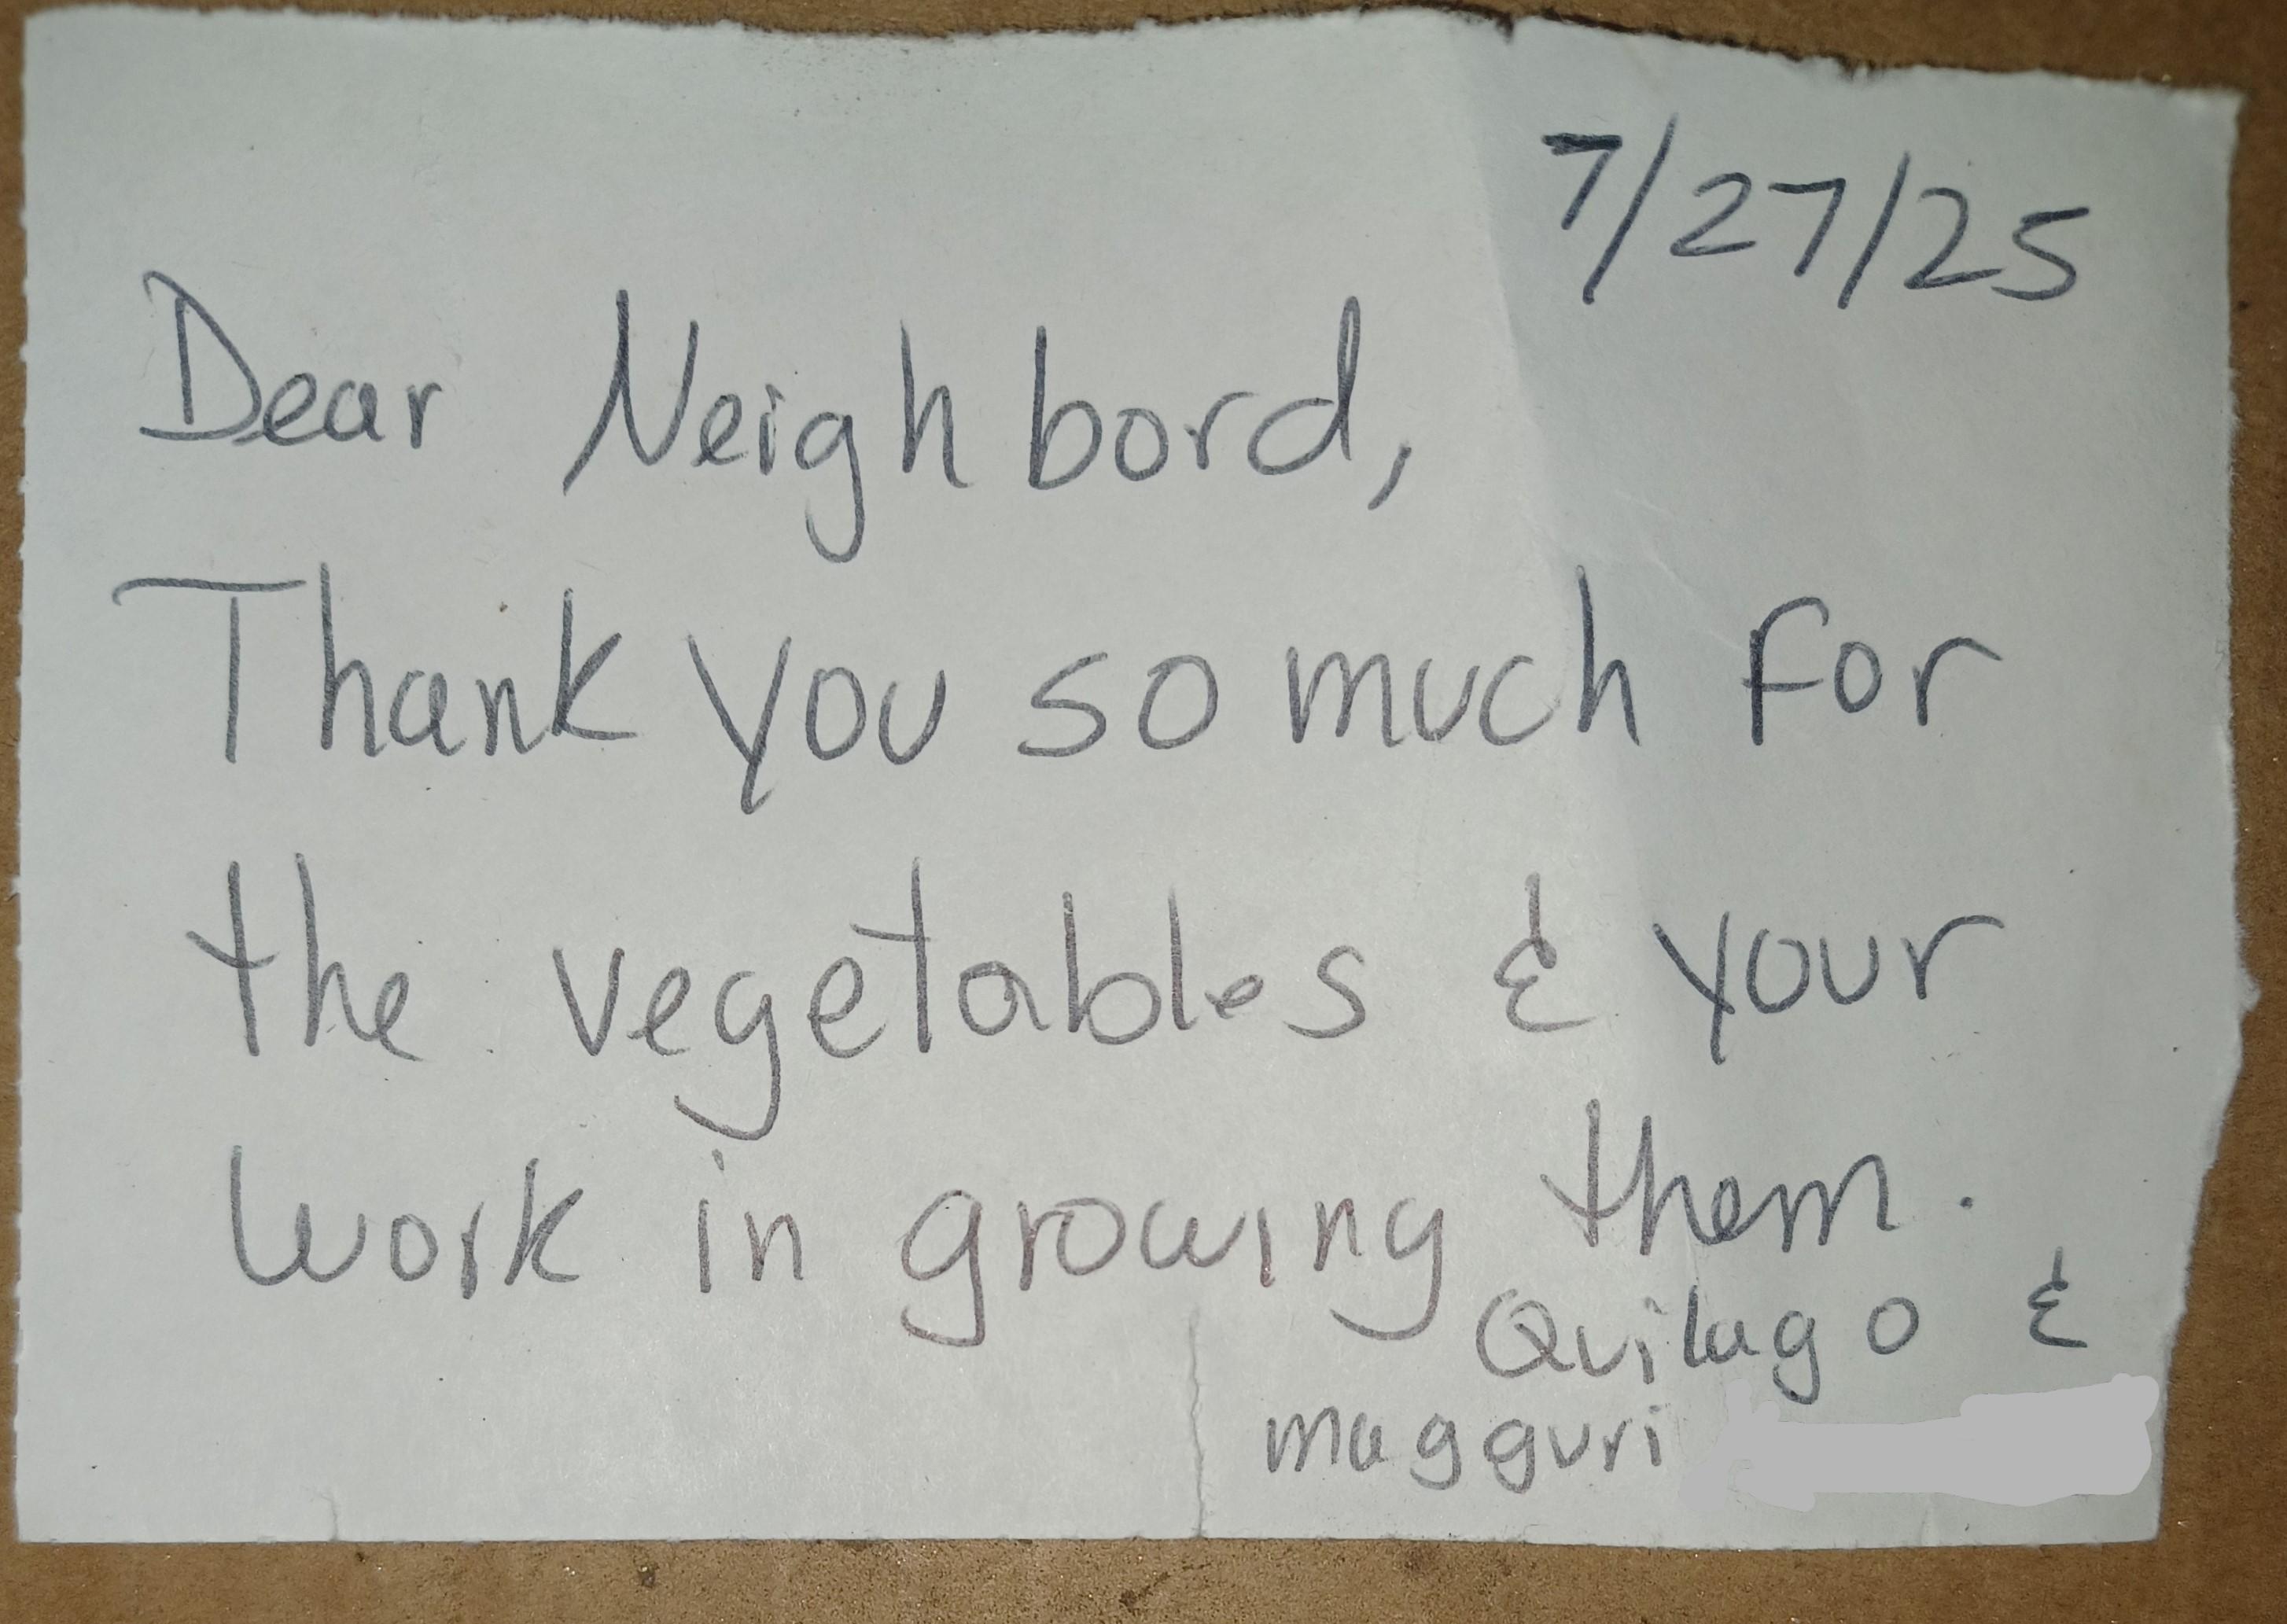 7/27/25
Dear Neighbord,
Thank you so much for
the vegetables & your
work in growing them.
Quilago &
magguri